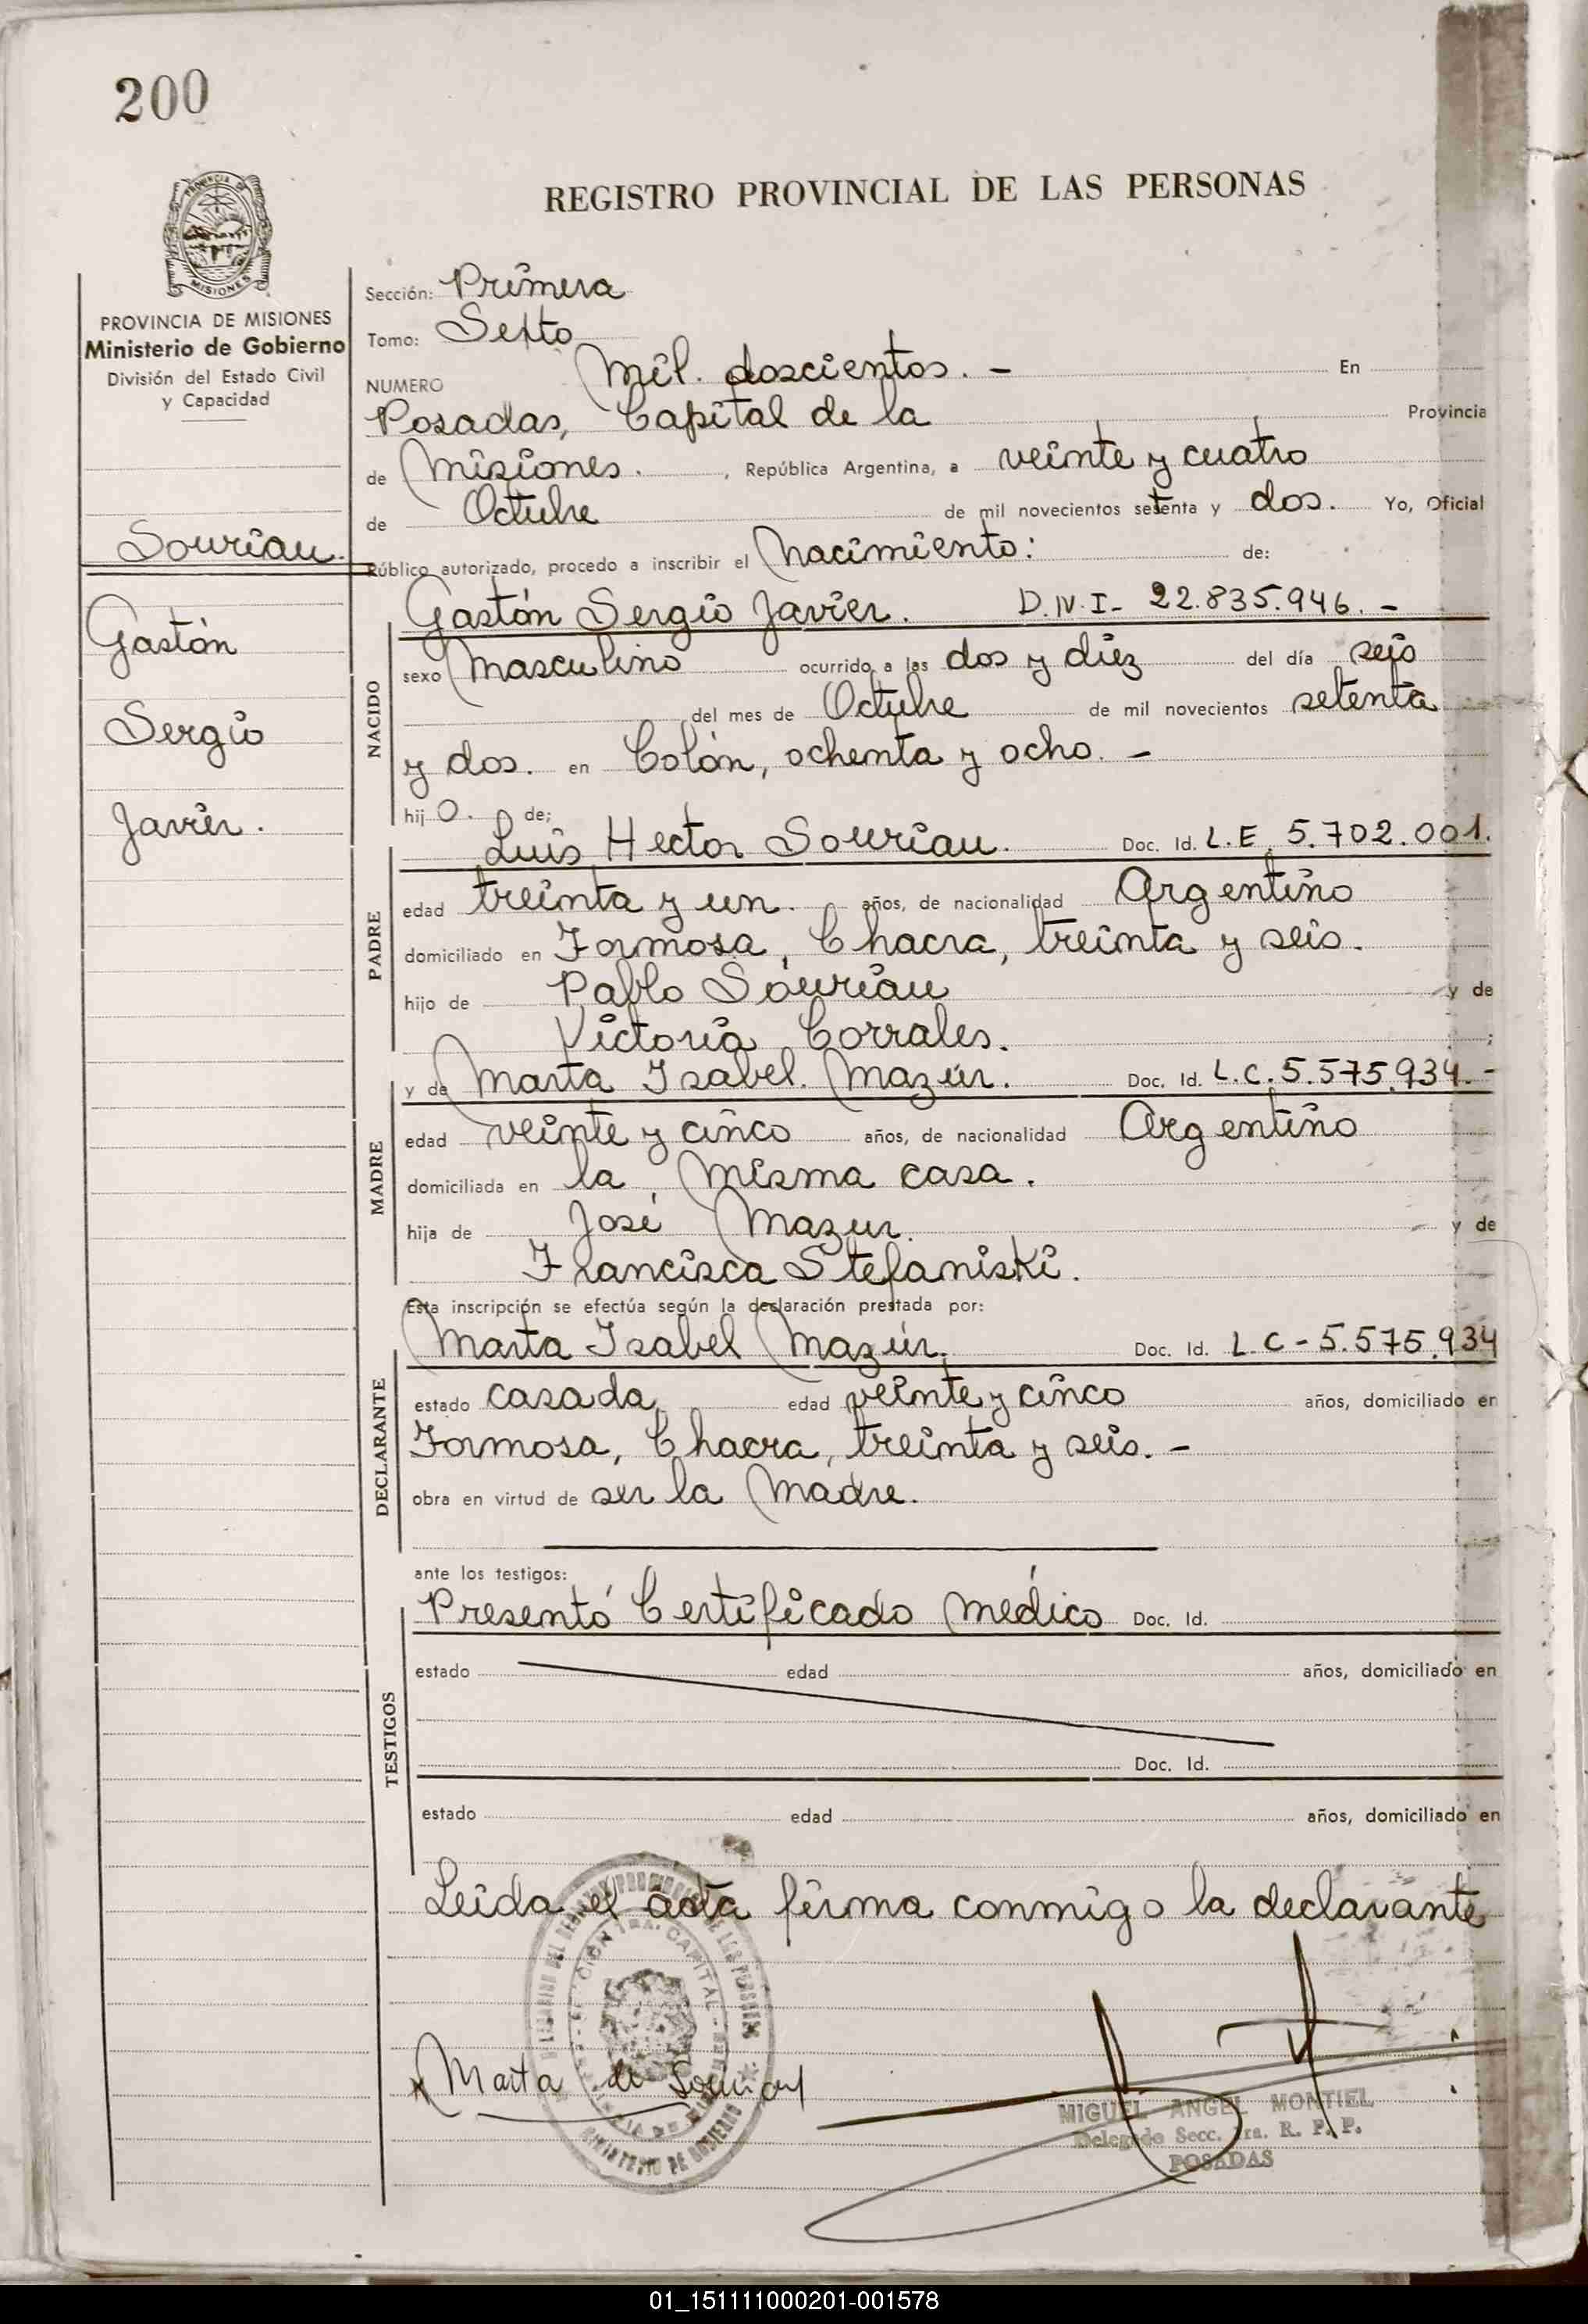 200
REGISTRO PROVINCIAL DE LAS PERSONAS
PROVINCIA DE MISIONES
MISIONES
PROVINCIA DE MISIONES
Ministerio de Gobierno
División del Estado Civil
y Capacidad
Souriau.
Gastón
Sergio
Javier.
Sección: Primera
Tomo: Sexto
NUMERO Mil. doscientos. - En
Posadas, Capital de la Provincia
de Misiones. , República Argentina, a veinte y cuatro
de Octubre de mil novecientos setenta y dos. Yo, Oficial
Público autorizado, procedo a inscribir el Nacimiento: de:
NACIDO
Gastón Sergio Javier. D.N.I- 22.835.946. -
sexo Masculino ocurrido a las dos y diez del día seis
del mes de Octubre de mil novecientos setenta
y dos. en Colón, ochenta y ocho. -
hij o. de;
PADRE
Luis Hector Souriau. Doc. Id. L.E. 5.702.001.
edad treinta y un. años, de nacionalidad Argentino
domiciliado en Formosa, Chacra, treinta y seis.
hijo de Pablo Souriau y de
Victoria Corrales. ;
MADRE
y de Marta Isabel. Mazúr. Doc. Id. L.C. 5.575.934. -
edad veinte y cinco años, de nacionalidad Argentino
domiciliada en la, misma casa.
hija de José Mazur. y de
Francisca Stefaniski.
Esta inscripción se efectúa según la declaración prestada por:
DECLARANTE
Marta Isabel Mazúr. Doc. Id. L.C - 5.575.934
estado casada, edad veinte y cinco años, domiciliado en
Formosa, Chacra, treinta y seis. -
obra en virtud de ser la Madre.
ante los testigos:
TESTIGOS
Presentó Certificado Médico Doc. Id.
estado edad años, domiciliado en
Doc. Id.
estado edad años, domiciliado en
Leida el acta firma conmigo la declarante
Marta de Souriau
MIGUEL ANGEL MONTIEL
Delegado Secc. 1ra. R. P. P.
POSADAS
MINISTERIO DE GOBIERNO
01_151111000201-001578